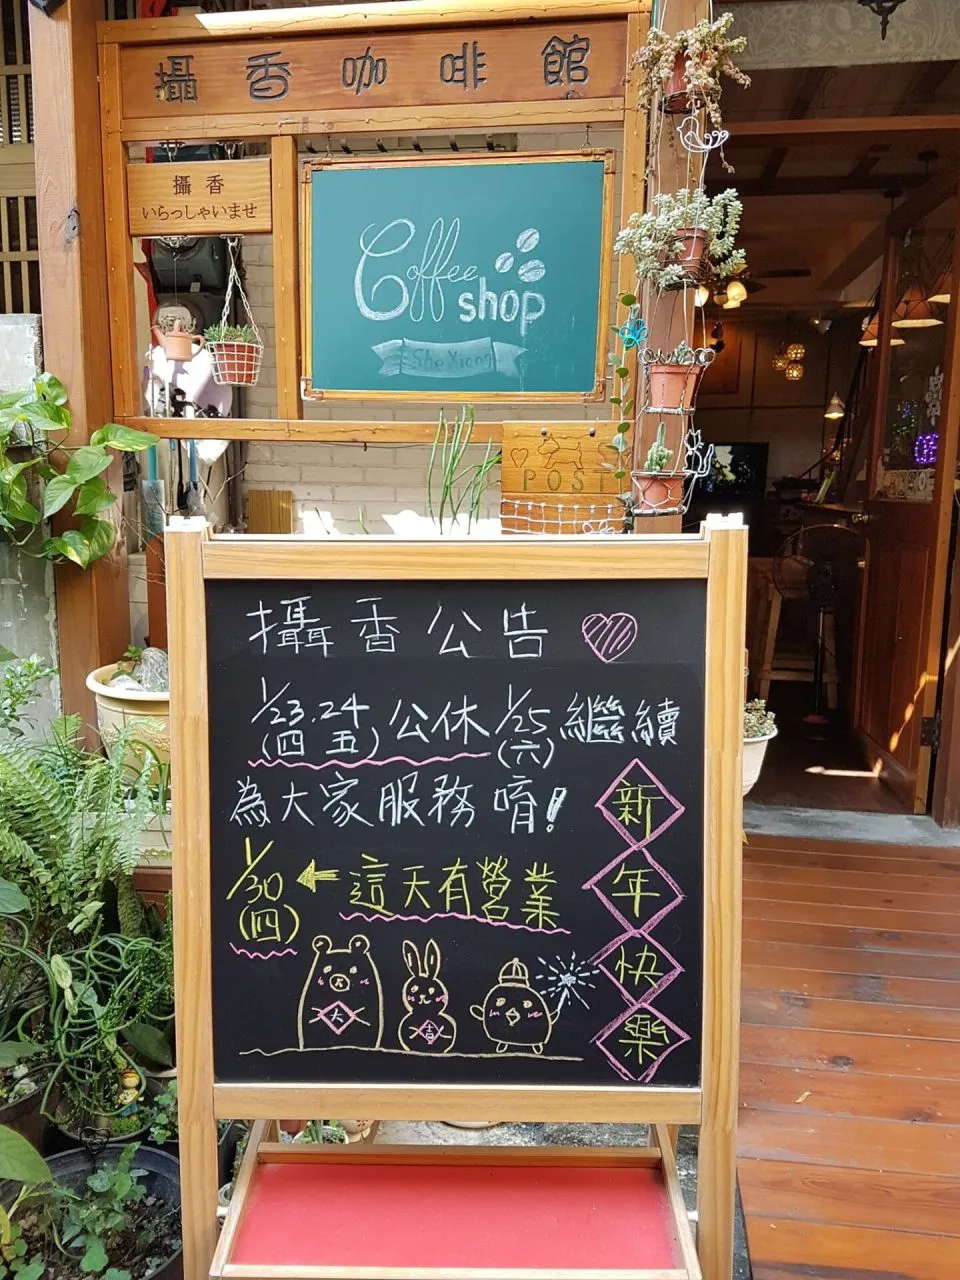 攝香咖啡館
攝香
いらっしゃいませ
Coffee
shop
She Xiang
POST
攝香公告
1/23.24公休1/25繼續
(四 五) (六)
為大家服務唷!
1/30←這天有營業
(四)
新
年
快
樂
大
吉